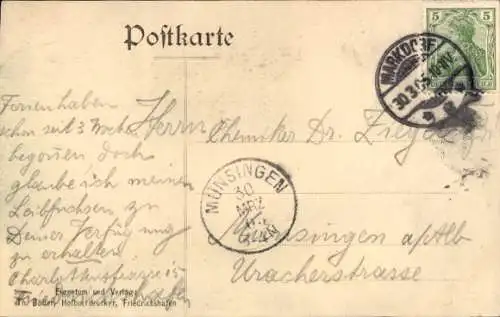 Postkarte
5
MARKDORF
30.3.05
Ferien haben
schon seit 3 Woch
begonnen doch
glaube ich meinen
Leibfuchsen zu
Deiner Verfügung
zu erhalten.
Charlottenstrasse 15
Friedrichshafen
Herrn
Chemiker Dr. Ziegel
Münsingen a/Alb
Uracherstrasse
MÜNSINGEN
30
MRZ
Eigentum und Verlag
Th. Bodenhofbuchdrucker, Friedrichshafen